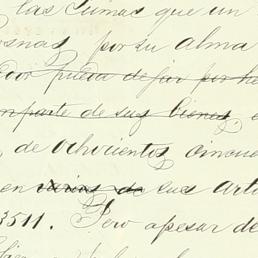 las sumas que un
por su alma
dor pueda dejar por he
parte de sus bienes, e
de ochocientos cincue
en varios de sus arti
3511. Pero apesar de